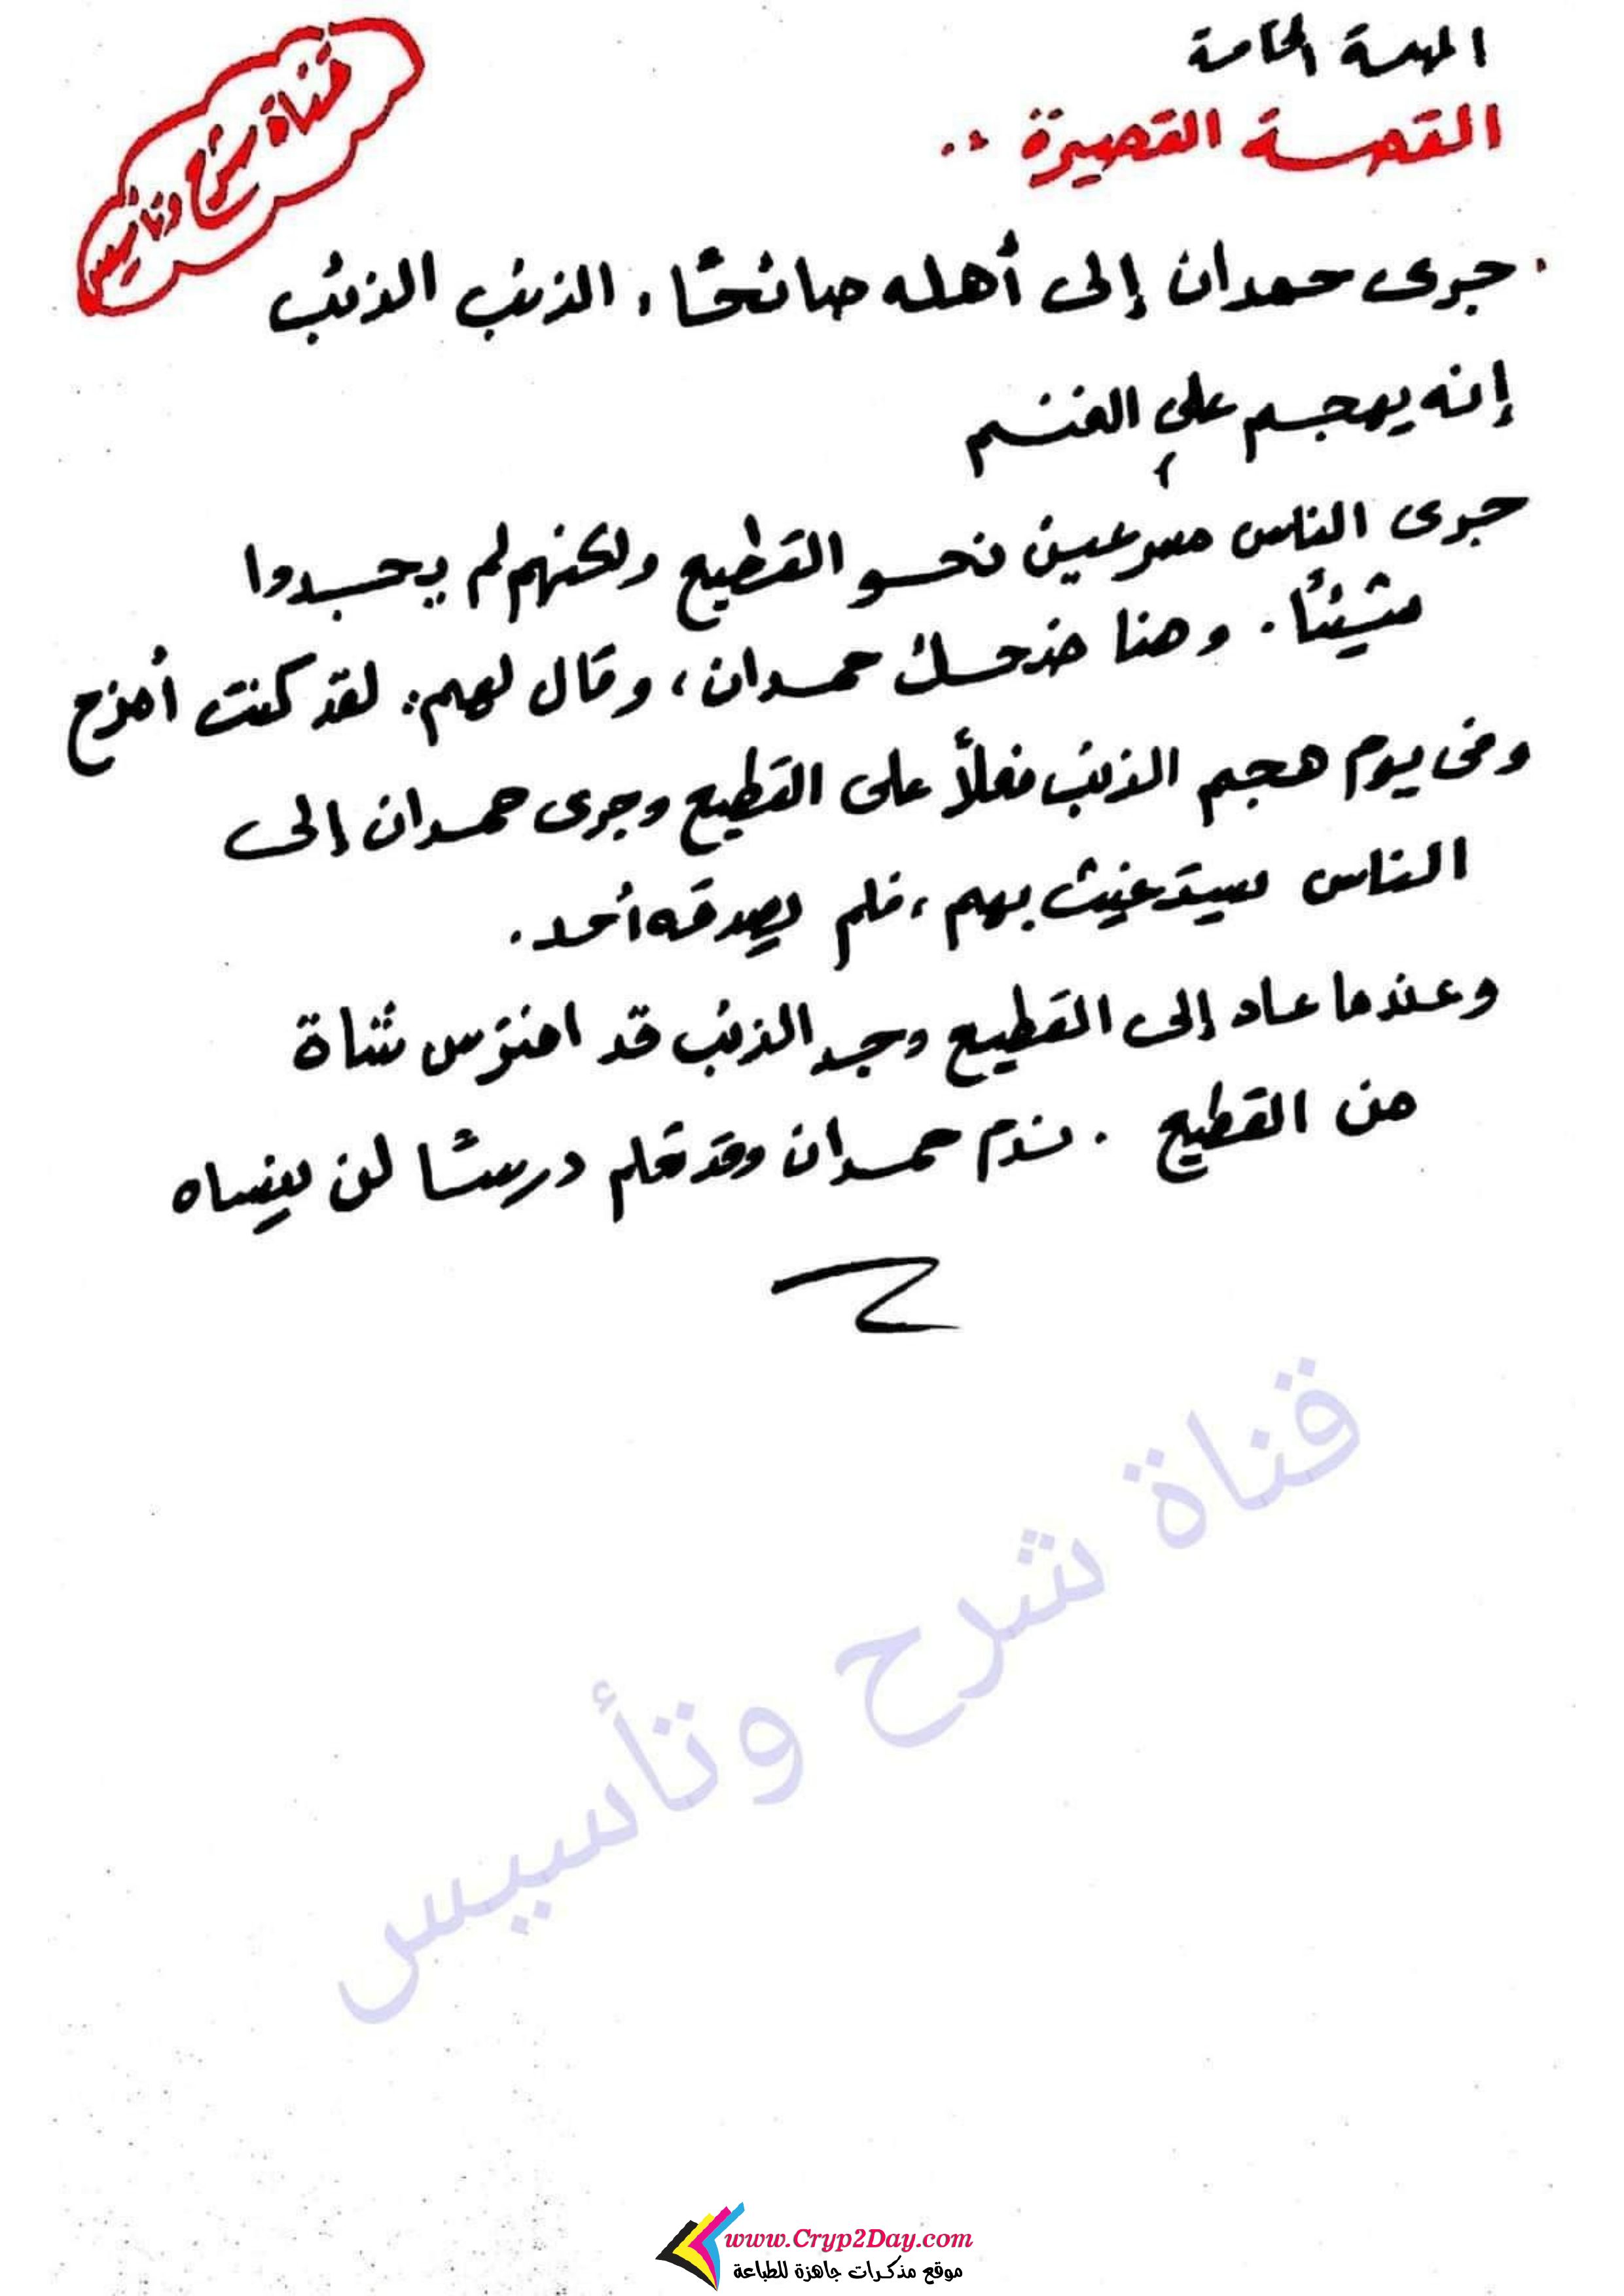 المهمة الخامسة
القصة القصيرة ..
قناة شرح وتأسيس
. جرى حمدان إلى أهله صائحًا، الذئب الذئب
إنه يهجم على الغنم
جرى الناس مسرعين نحو القطيع ولكنهم لم يجدوا
شيئًا. وهنا ضحك حمدان، وقال لهم: لقد كنت أمزح
وفى يوم هجم الذئب فعلاً على القطيع وجرى حمدان إلى
الناس يستغيث بهم، فلم يصدقه أحد.
وعندما عاد إلى القطيع وجد الذئب قد افترس شاة
من القطيع. ندم حمدان وقد تعلم درسًا لن ينساه
قناة شرح وتأسيس
www.Cryp2Day.com
موقع مذكرات جاهزة للطباعة